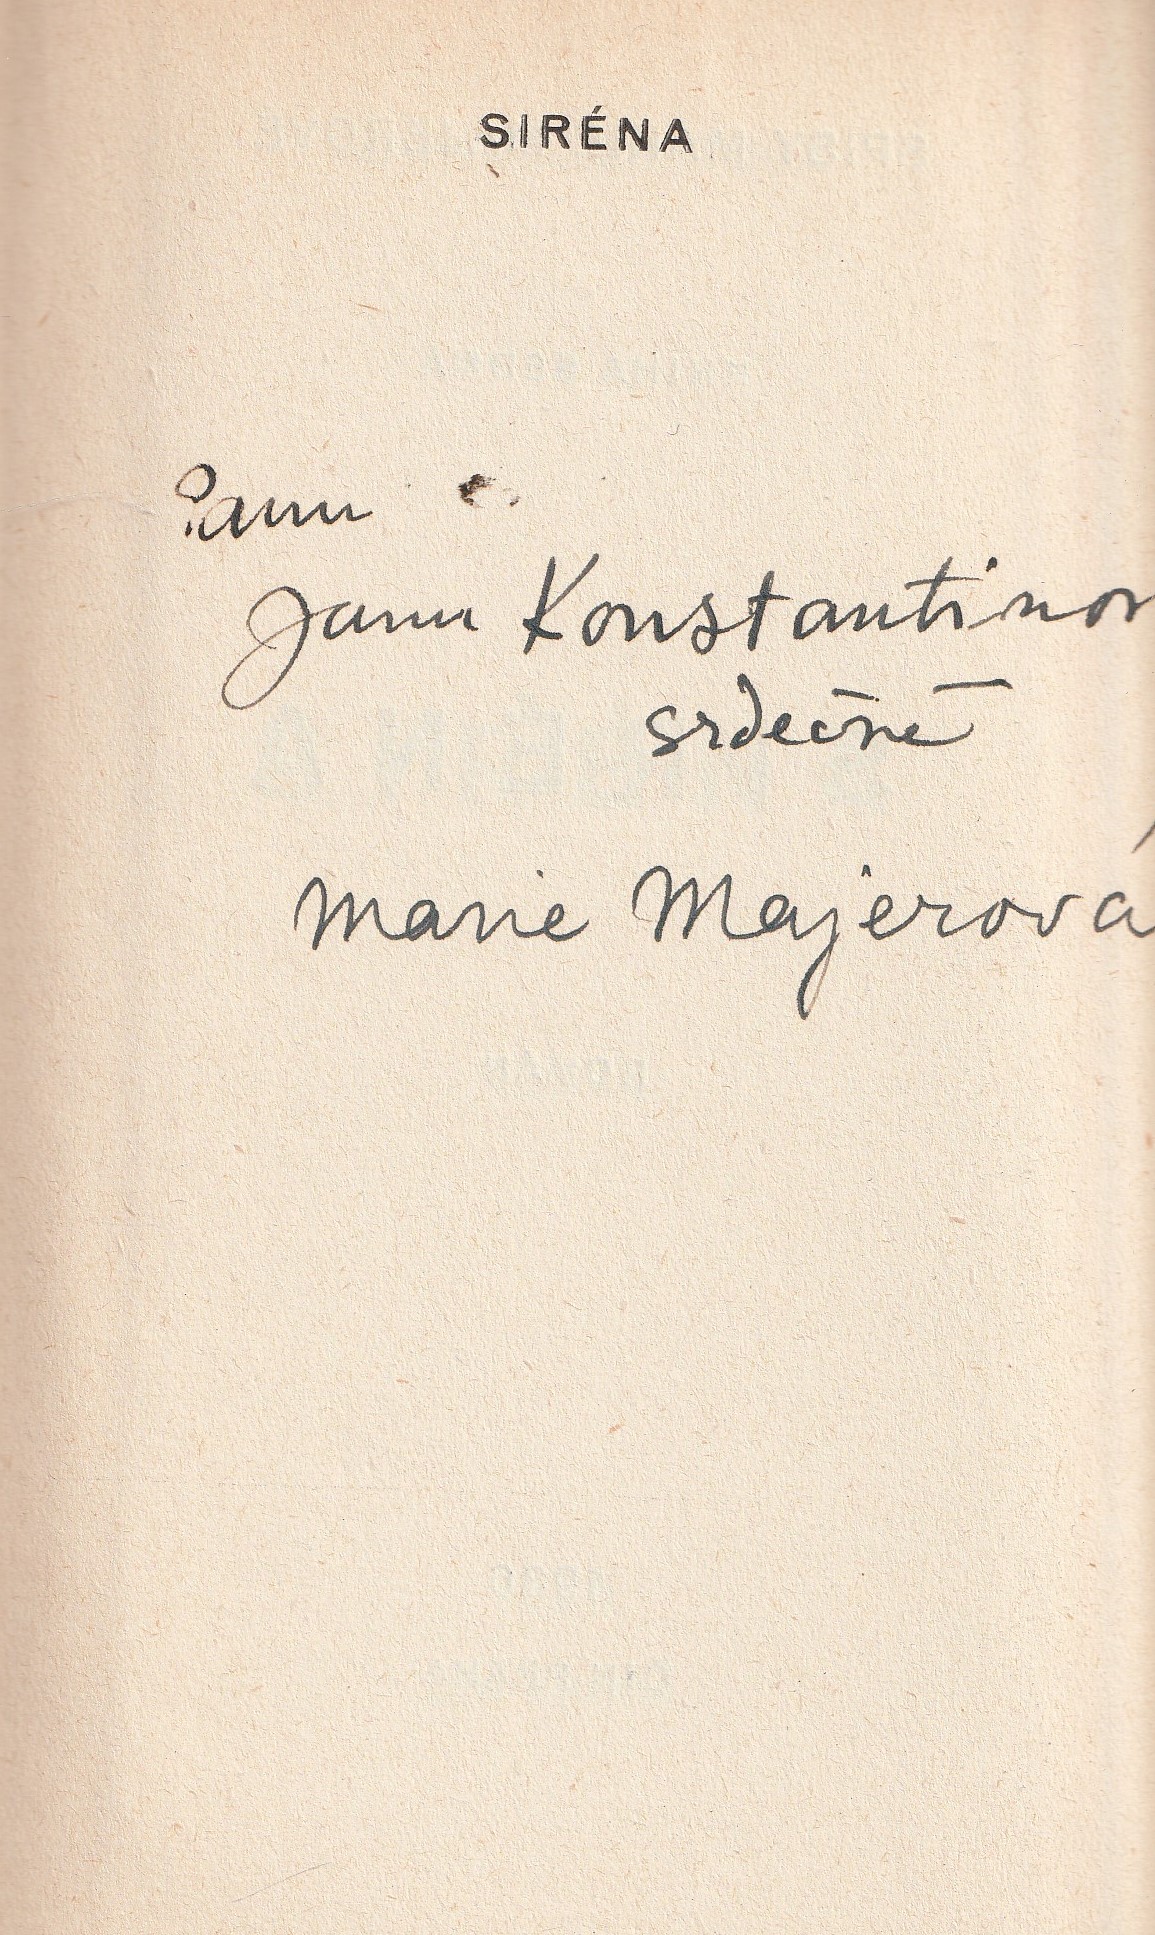 SIRÉNA
Panu
Janu Konstantinov
srdečně
Marie Majerová